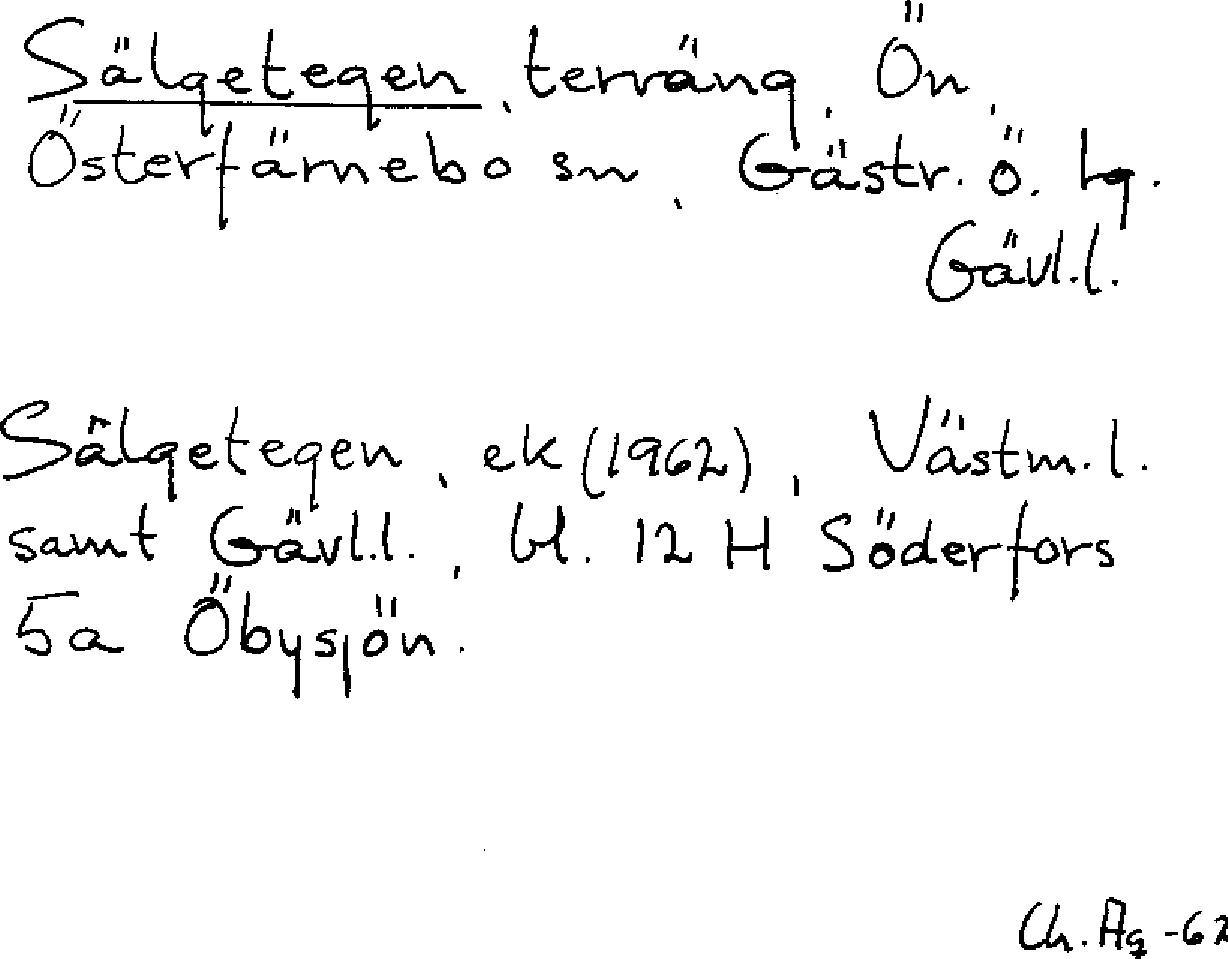 Sälgetegen, terräng, Ön,
Österfärnebo sn, Gästr. ö. hg.
Gävl.l.
Sälgetegen, ek (1962), Västm.l.
samt Gävl.l., bl. 12 H Söderfors
5a Öbysjön.
Ch. Ag -62